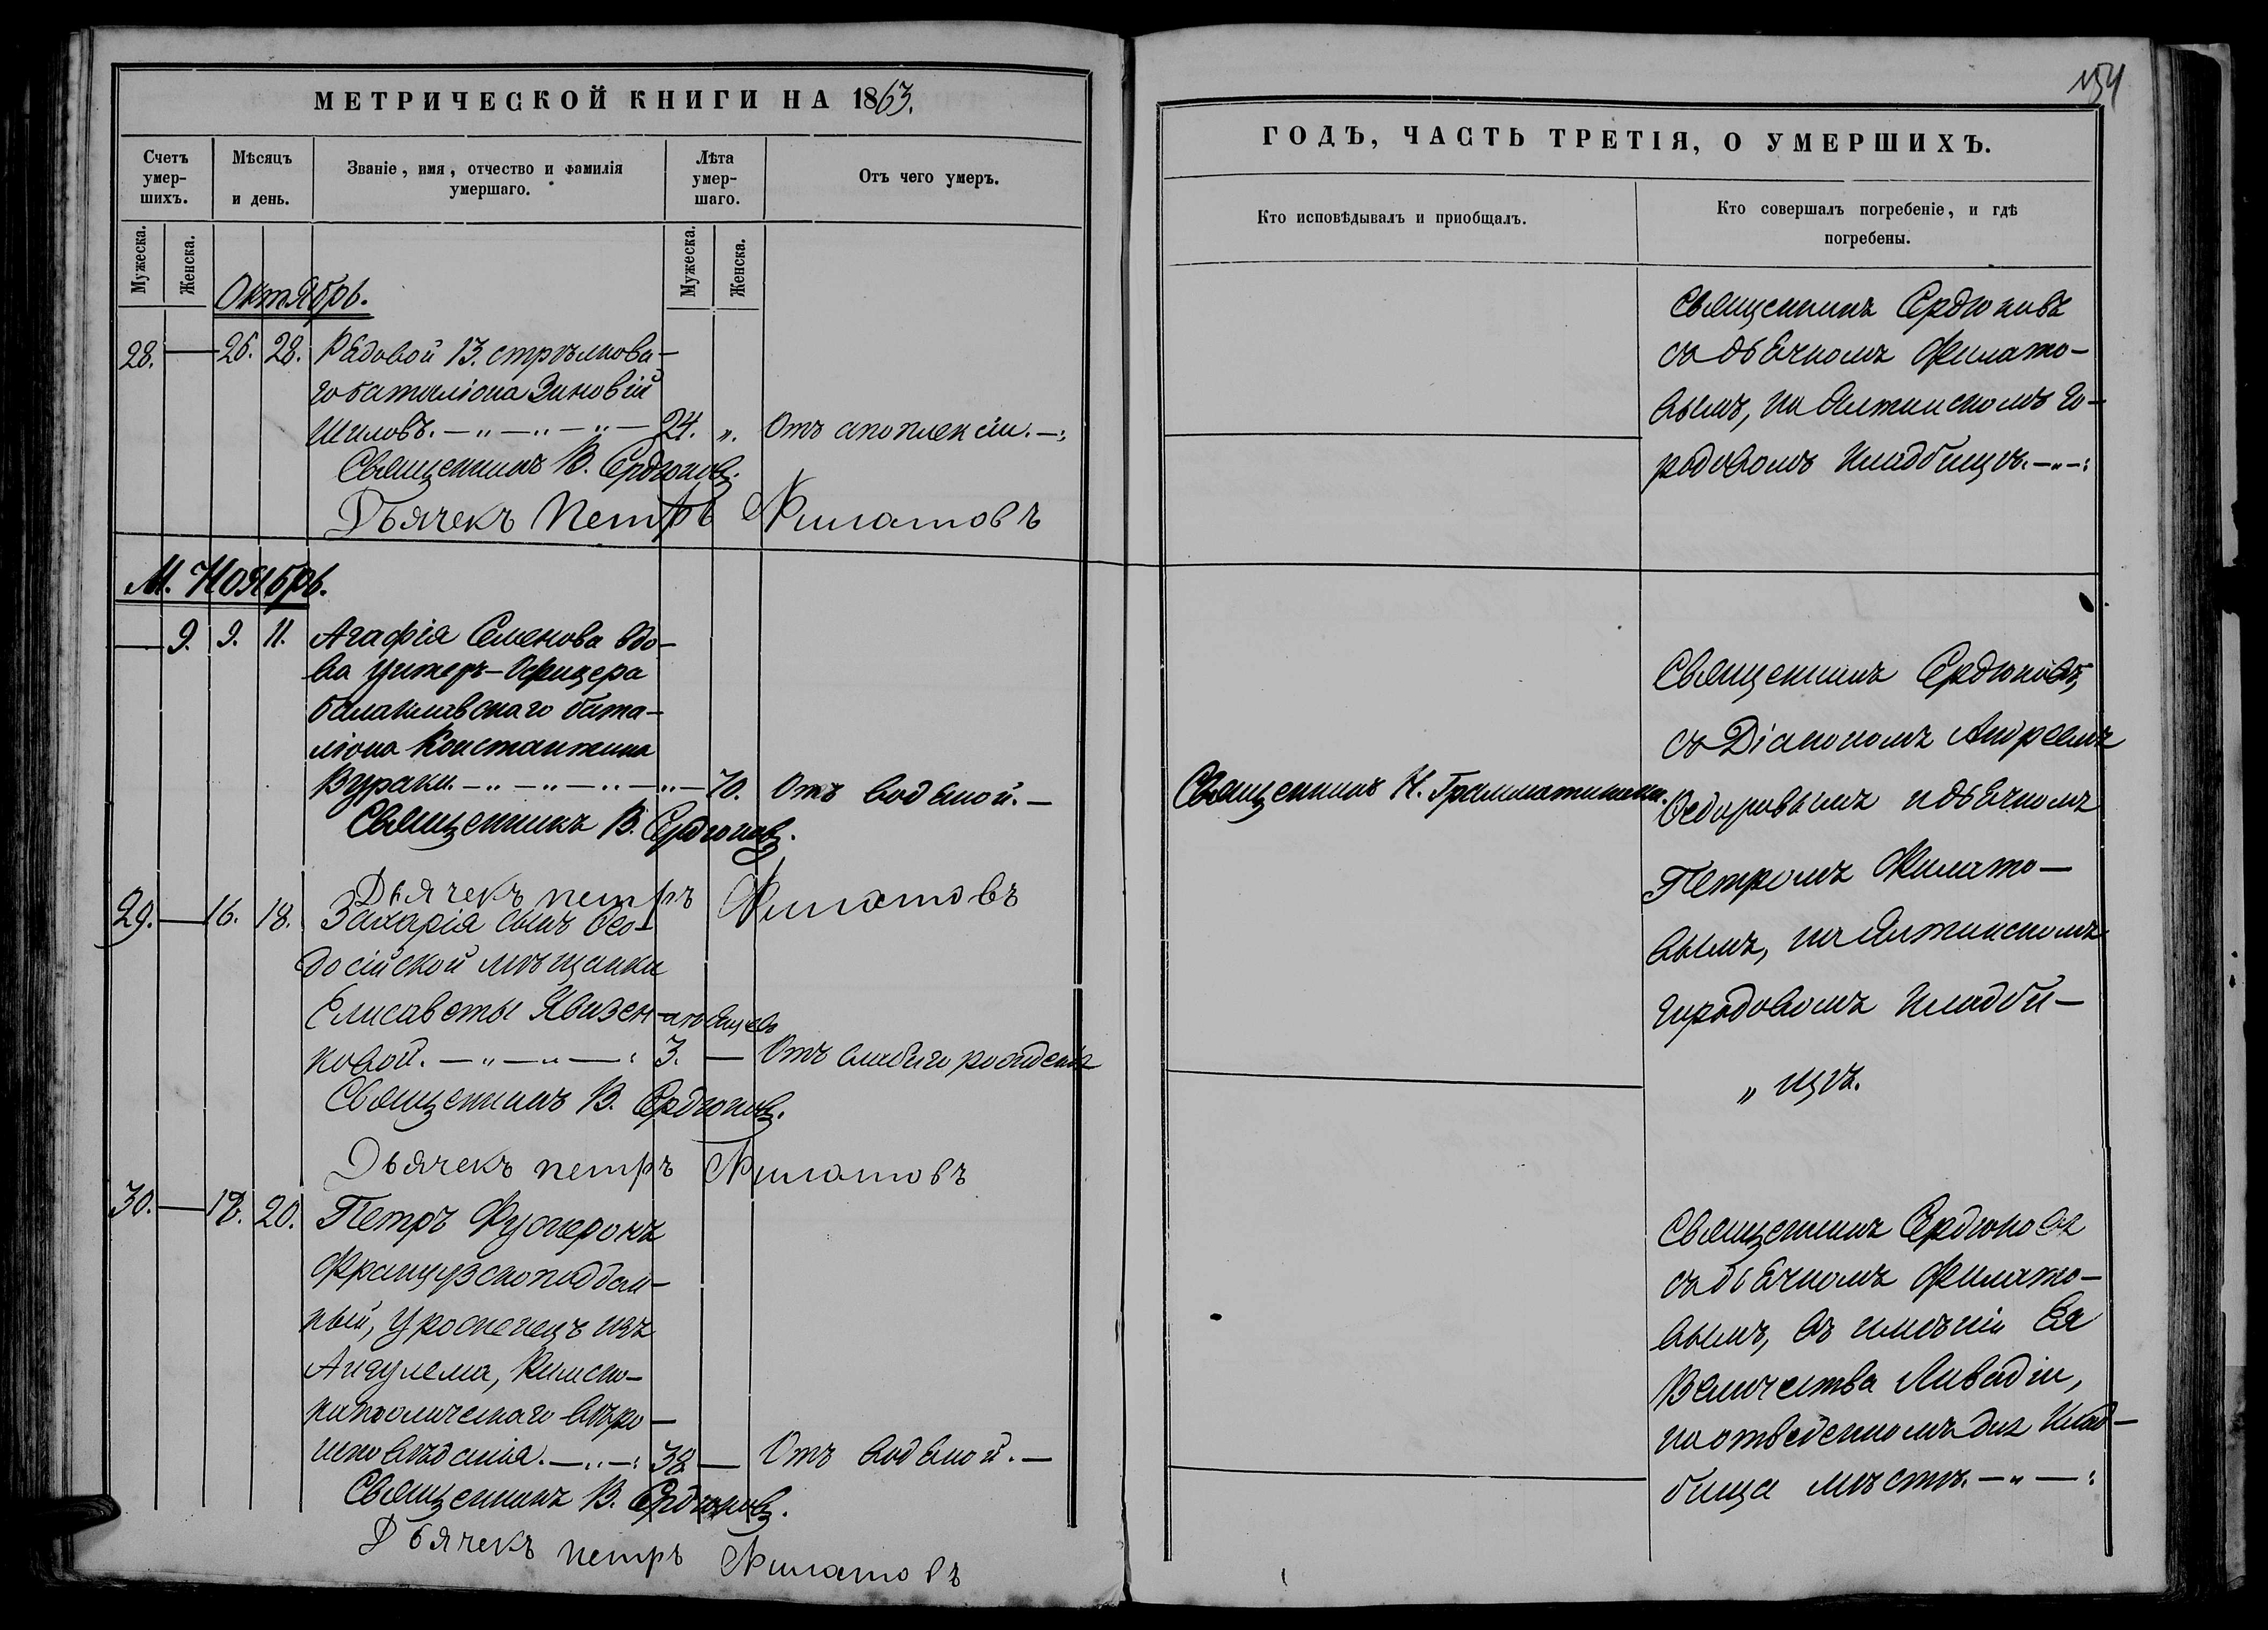 МЕТРИЧЕСКОЙ КНИГИ НА 1863.
Счетъ умер-шихъ.
Мѣсяцъ и день.
Званіе, имя, отчество и фамилія умершаго.
Лѣта умер-шаго.
Отъ чего умеръ.
Мужеска.
Женска.
Мужеска.
Женска.
Октябрь.
28. — 26. 28. Рядовой 13. стрѣлкова-
го баталіона Зиновій
Шиловъ. — „ — „ — „ — 24. „. Отъ апоплексіи. —:
Священникъ В. Сердюковъ.
Дьячекъ Петръ Филатовъ
М. Ноябрь.
— 9. 9. 11. Агафія Семенова вдо-
ва Унтеръ-Офицера
балаклавскаго бата-
ліона Константина
Вураки. — „ — „ — „ — „ — 70. Отъ водяной. —
Священникъ В. Сердюковъ.
Дьячекъ петръ Филатовъ
29. — 16. 18. Захарія сынъ Ѳео-
досійской мѣщанки
Елисаветы
ковой. — „ — „ — : 3. — Отъ слабаго рожденія
Священникъ В. Сердюковъ.
Дьячекъ петръ Филатовъ
30. — 18. 20. Петръ
Французскоподдан-
ный, уроженецъ изъ
Ангулема, Римско-
католическаго вѣро-
исповѣданія. — „ —: 38 — Отъ водяной. —
Священникъ В. Сердюковъ.
Дьячекъ петръ Филатовъ
154
ГОДЪ, ЧАСТЬ ТРЕТІЯ, О УМЕРШИХЪ.
Кто исповѣдывалъ и приобщалъ.
Кто совершалъ погребеніе, и гдѣ погребены.
Священникъ Сердюковъ
съ дьячкомъ Филато-
вымъ, на Ялтинскомъ го-
родовомъ кладбищѣ. — „ —:
Священникъ Н. Грамматикинъ.
Священникъ Сердюковъ,
съ Діакономъ Андреемъ
Ѳедоровымъ и дьячкомъ
Петромъ Филато-
вымъ, на Ялтинскомъ
городовомъ кладби-
„ щѣ.
Священникъ Сердюковъ
съ дьячкомъ Филато-
вымъ, въ имѣніи Ея
Величества Ливадіи,
на отведенномъ для клад-
бища мѣстѣ. — „ —: